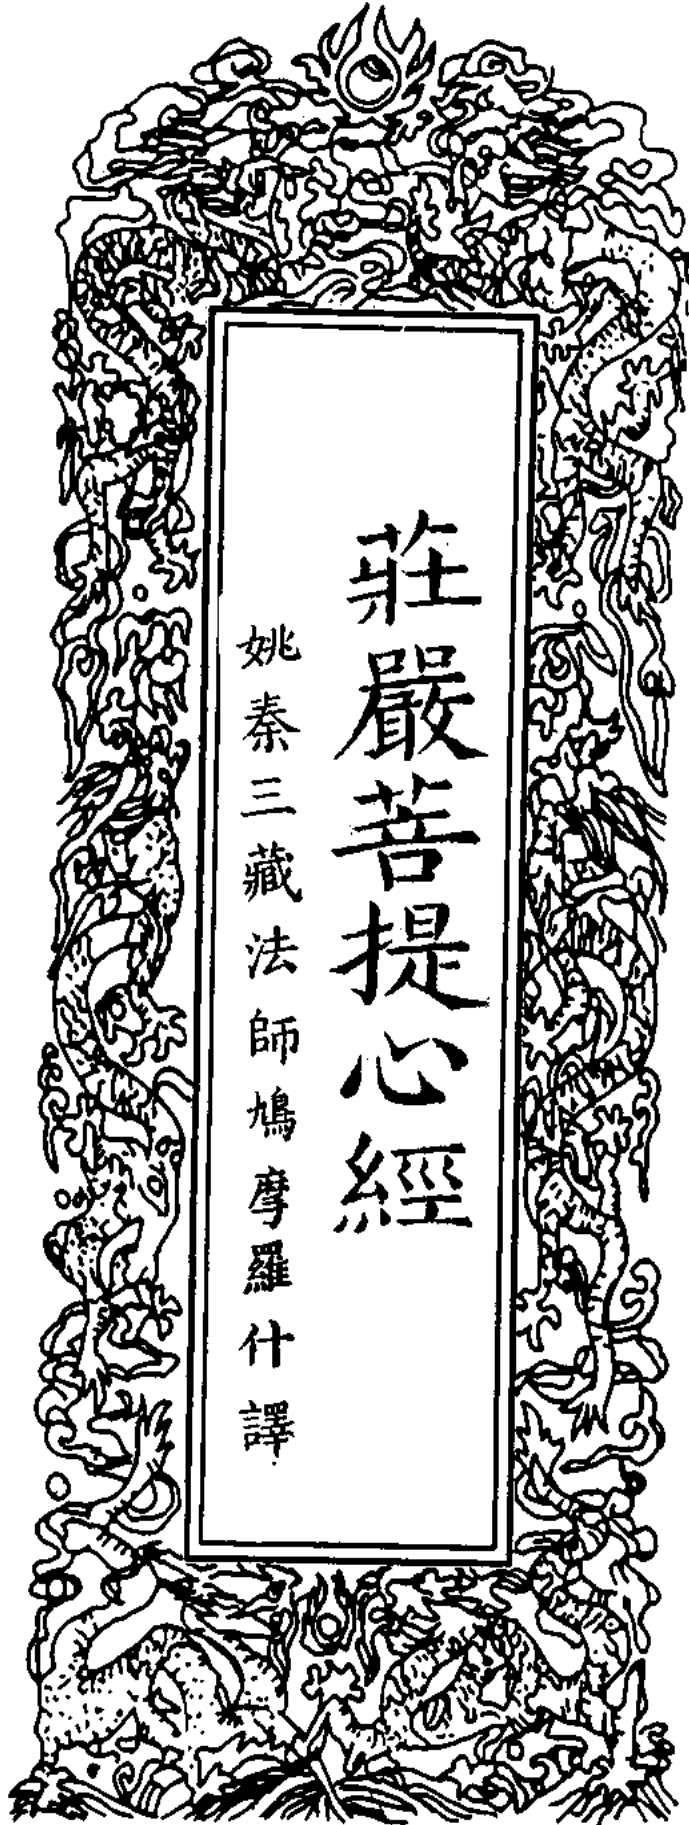 莊嚴菩提心經
姚秦三藏法師鳩摩羅什譯